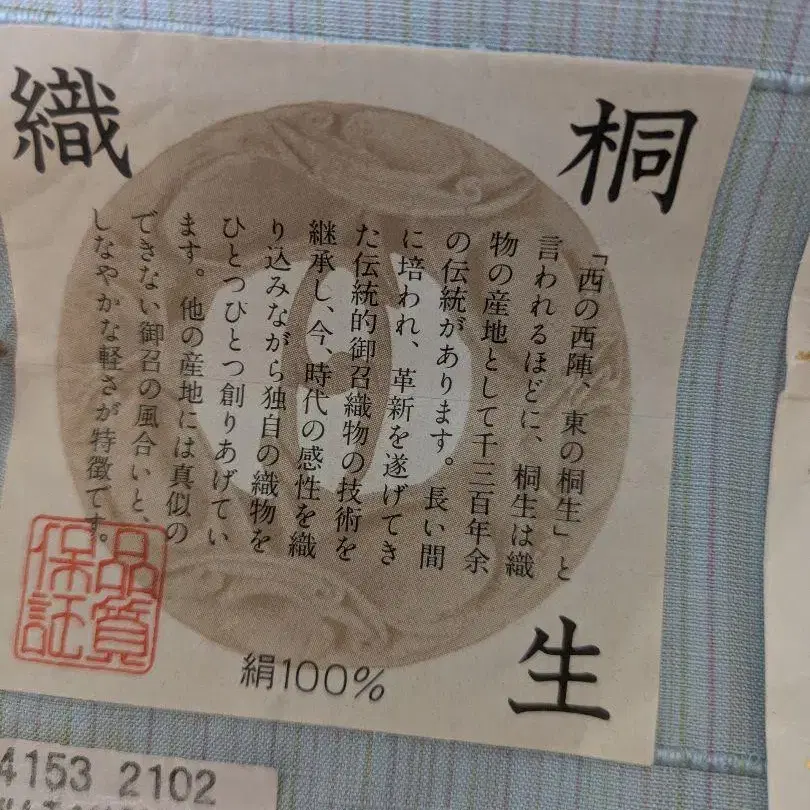 桐
生
織
「西の西陣、東の桐生」と
言われるほどに、桐生は織
物の産地として千三百年余
の伝統があります。長い間
に培われ、革新を遂げてき
た伝統的御召織物の技術を
継承し、今、時代の感性を織
り込みながら独自の織物を
ひとつひとつ創りあげてい
ます。他の産地には真似の
できない御召の風合いと、
しなやかな軽さが特徴です。
品質
保証
絹100%
4153 2102